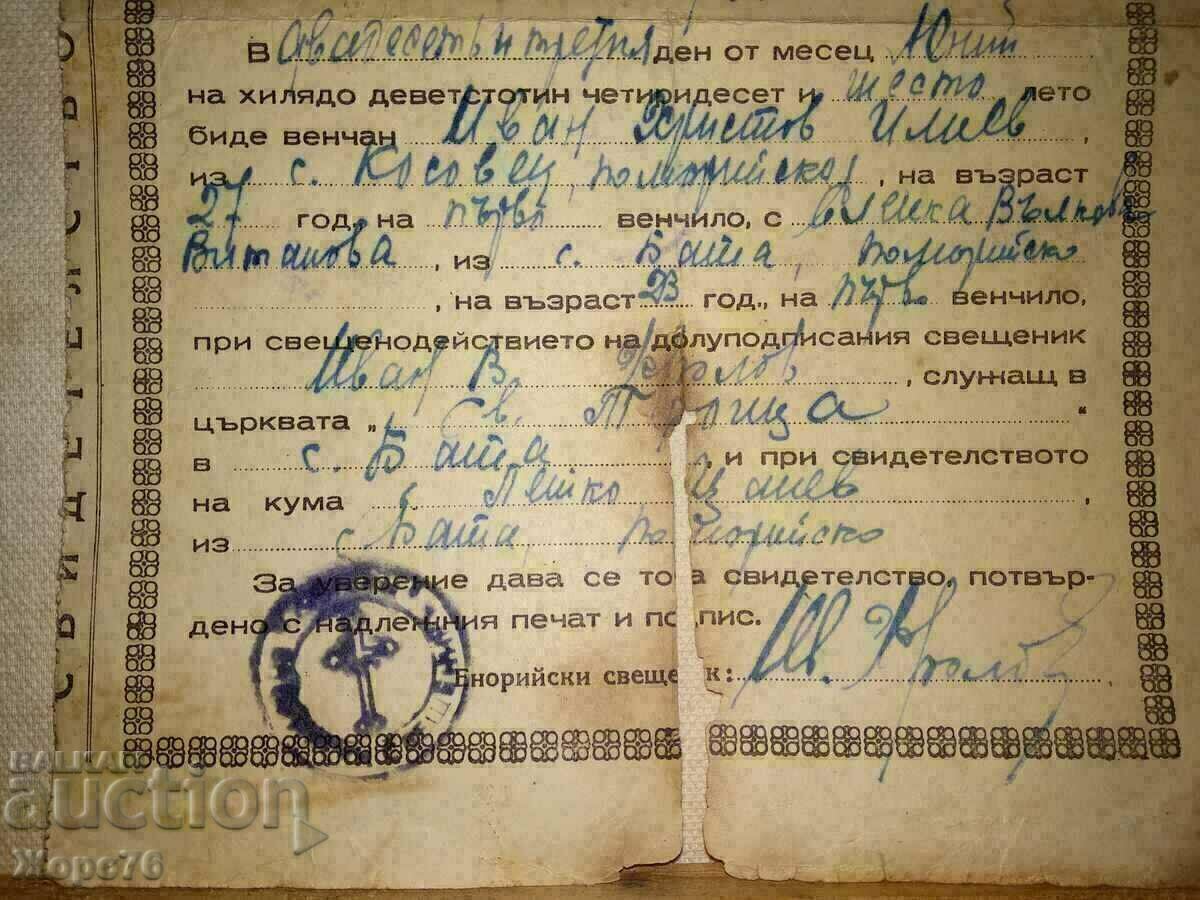 СВИДЕТЕЛСТВО
В двадесеть и третия ден от месец Юний
на хилядо деветстотин четиридесет и шесто лето
биде венчан Иван Христов Илиев,
из с. Косовец, поморийско, на възраст
27 год., на първо венчило, с Вълкова
Витанова, из с. Бата, поморийско
, на възраст 23 год., на първо венчило,
при свещенодействието на долуподписания свещеник
Иван В., служащ в
църквата „Св. Троица“
в с. Бата, и при свидетелството
на кума Пейко Цанев,
из с. Бата, поморийско
За уверение дава се то а свидетелство, потвър-
дено с надлежния печат и подпис.
Енорийски свещеник: Ив.
BALKAN
auction
Жоре76